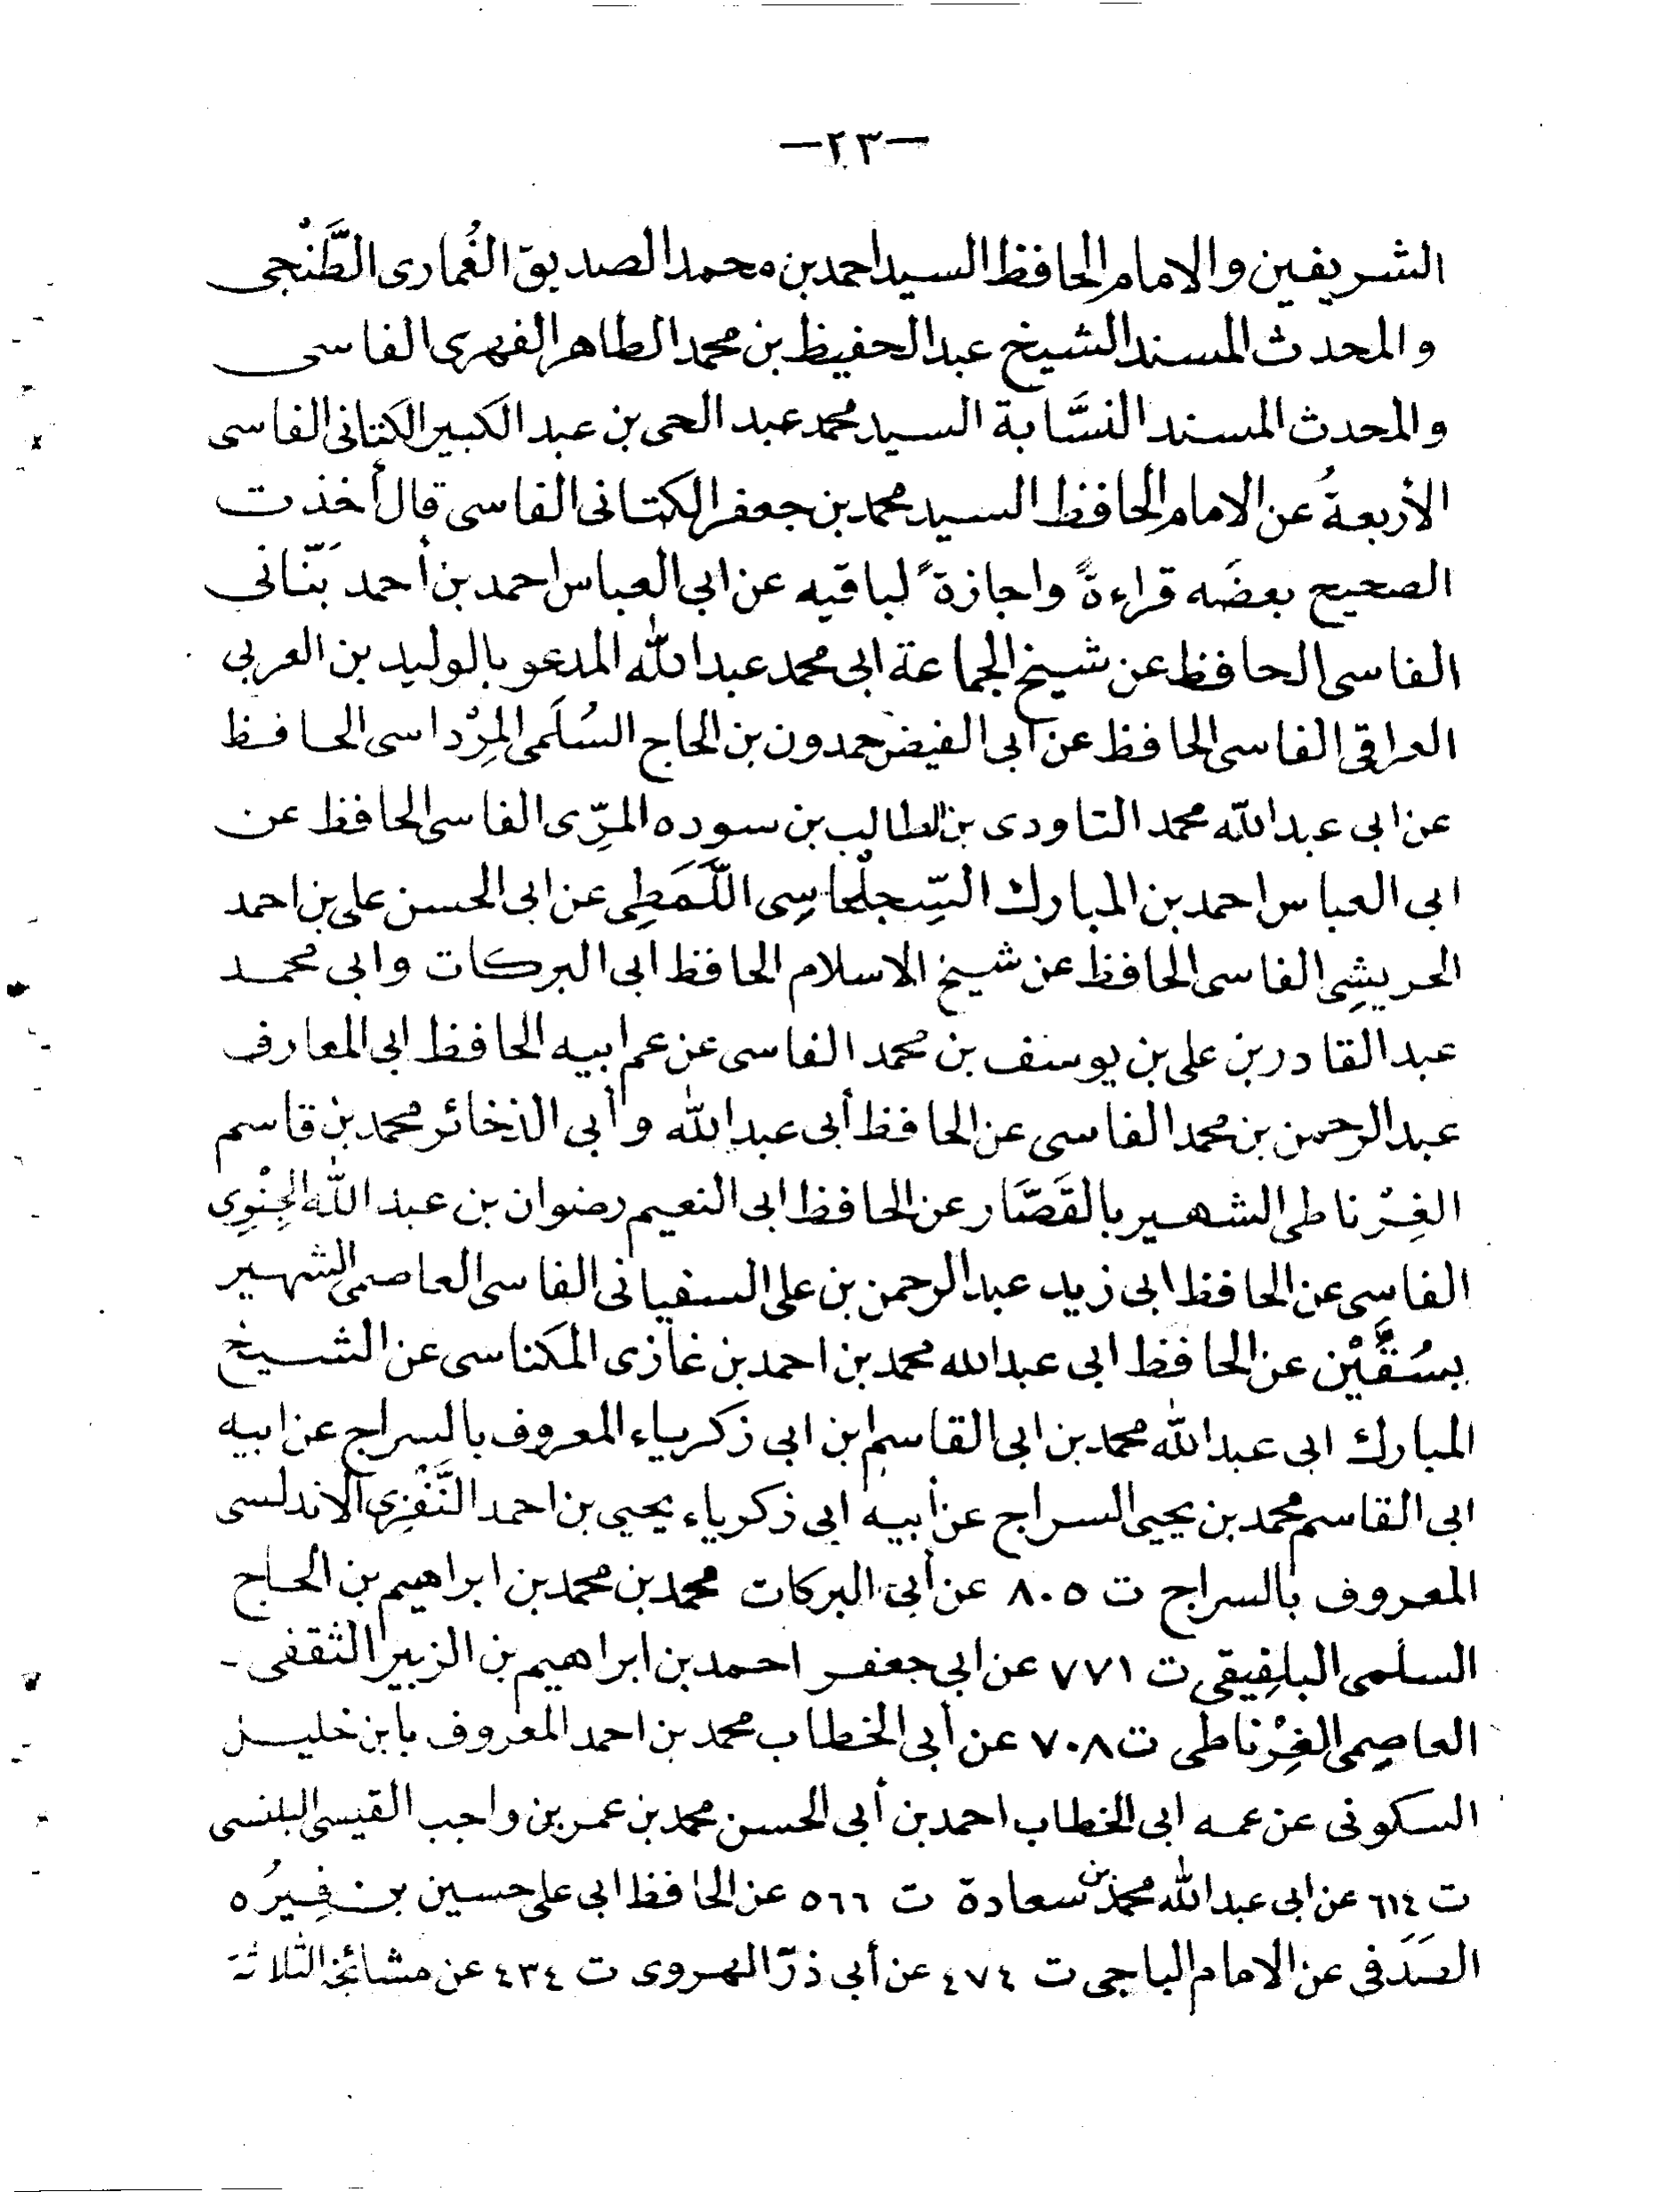 —٢٣—
الشريفين والامام الحافظ السيد احمد بن محمد الصديق الغُمارى الطَّنْجى
والمحدث المسند الشيخ عبد الحفيظ بن محمد الطاهر الفهرى الفاسى
والمحدث المسند النسَّابة السيد محمد عبد الحى بن عبد الكبير الكتانى الفاسى
الأربعةُ عن الامام الحافظ السيد محمد بن جعفر الكتانى الفاسى قال أخذت
الصحيح بعضَه قراءةً واجازةً لباقيه عن ابى العباس احمد بن أحمد بَنّانى
الفاسى الحافظ عن شيخ الجماعة ابى محمد عبد الله المدعو بالوليد بن العربى
العراقى الفاسى الحافظ عن أبى الفيض حمدون بن الحاج السُلَمى المِرْداسى الحافظ
عن ابى عبد الله محمد التاودى بن الطالب بن سوده المرّى الفاسى الحافظ عن
ابى العباس احمد بن المبارك السِّجِلْماسِى اللَّمَطِى عن ابى الحسن على بن احمد
الحريشِى الفاسى الحافظ عن شيخ الاسلام الحافظ ابى البركات وابى محمد
عبد القادر بن على بن يوسف بن محمد الفاسى عن عم ابيه الحافظ ابى المعارف
عبد الرحمن بن محمد الفاسى عن الحافظ أبى عبد الله وأبى الذخائر محمد بن قاسم
الغِرْناطى الشهير بالقَصَّار عن الحافظ ابى النعيم رضوان بن عبد الله الجِنْوِى
الفاسِى عن الحافظ ابى زيد عبد الرحمن بن على السفيانى الفاسى العاصمى الشهير
بسُقَّيْن عن الحافظ ابى عبد الله محمد بن احمد بن غازى المكناسى عن الشيخ
المبارك ابى عبد الله محمد بن ابى القاسم ابن ابى زكرياء المعروف بالسراج عن ابيه
ابى القاسم محمد بن يحيى السراج عن أبيه ابى زكرياء يحيى بن احمد النَّفْزِى الاندلسى
المعروف بالسراج ت ٨٠٥ عن أبى البركات محمد بن محمد بن ابراهيم بن الحاج
السلمى البلفِيقى ت ٧٧١ عن ابى جعفر احمد بن ابراهيم بن الزبير الثقفى-
العاصِمى الغِرْناطى ت ٧٠٨ عن أبى الخطاب محمد بن احمد المعروف بابن خليل
السكونى عن عمه ابى الخطاب احمد بن أبى الحسن محمد بن عمر بن واجب القيسى البلنسى
ت ٦١٤ عن ابى عبد الله محمد بن سعادة ت ٥٦٦ عن الحافظ ابى على حسين بن فِيرُه
الصَدَفى عن الامام الباجى ت ٤٧٤ عن أبى ذرّ الهروى ت ٤٣٤ عن مشائخه الثلاثة